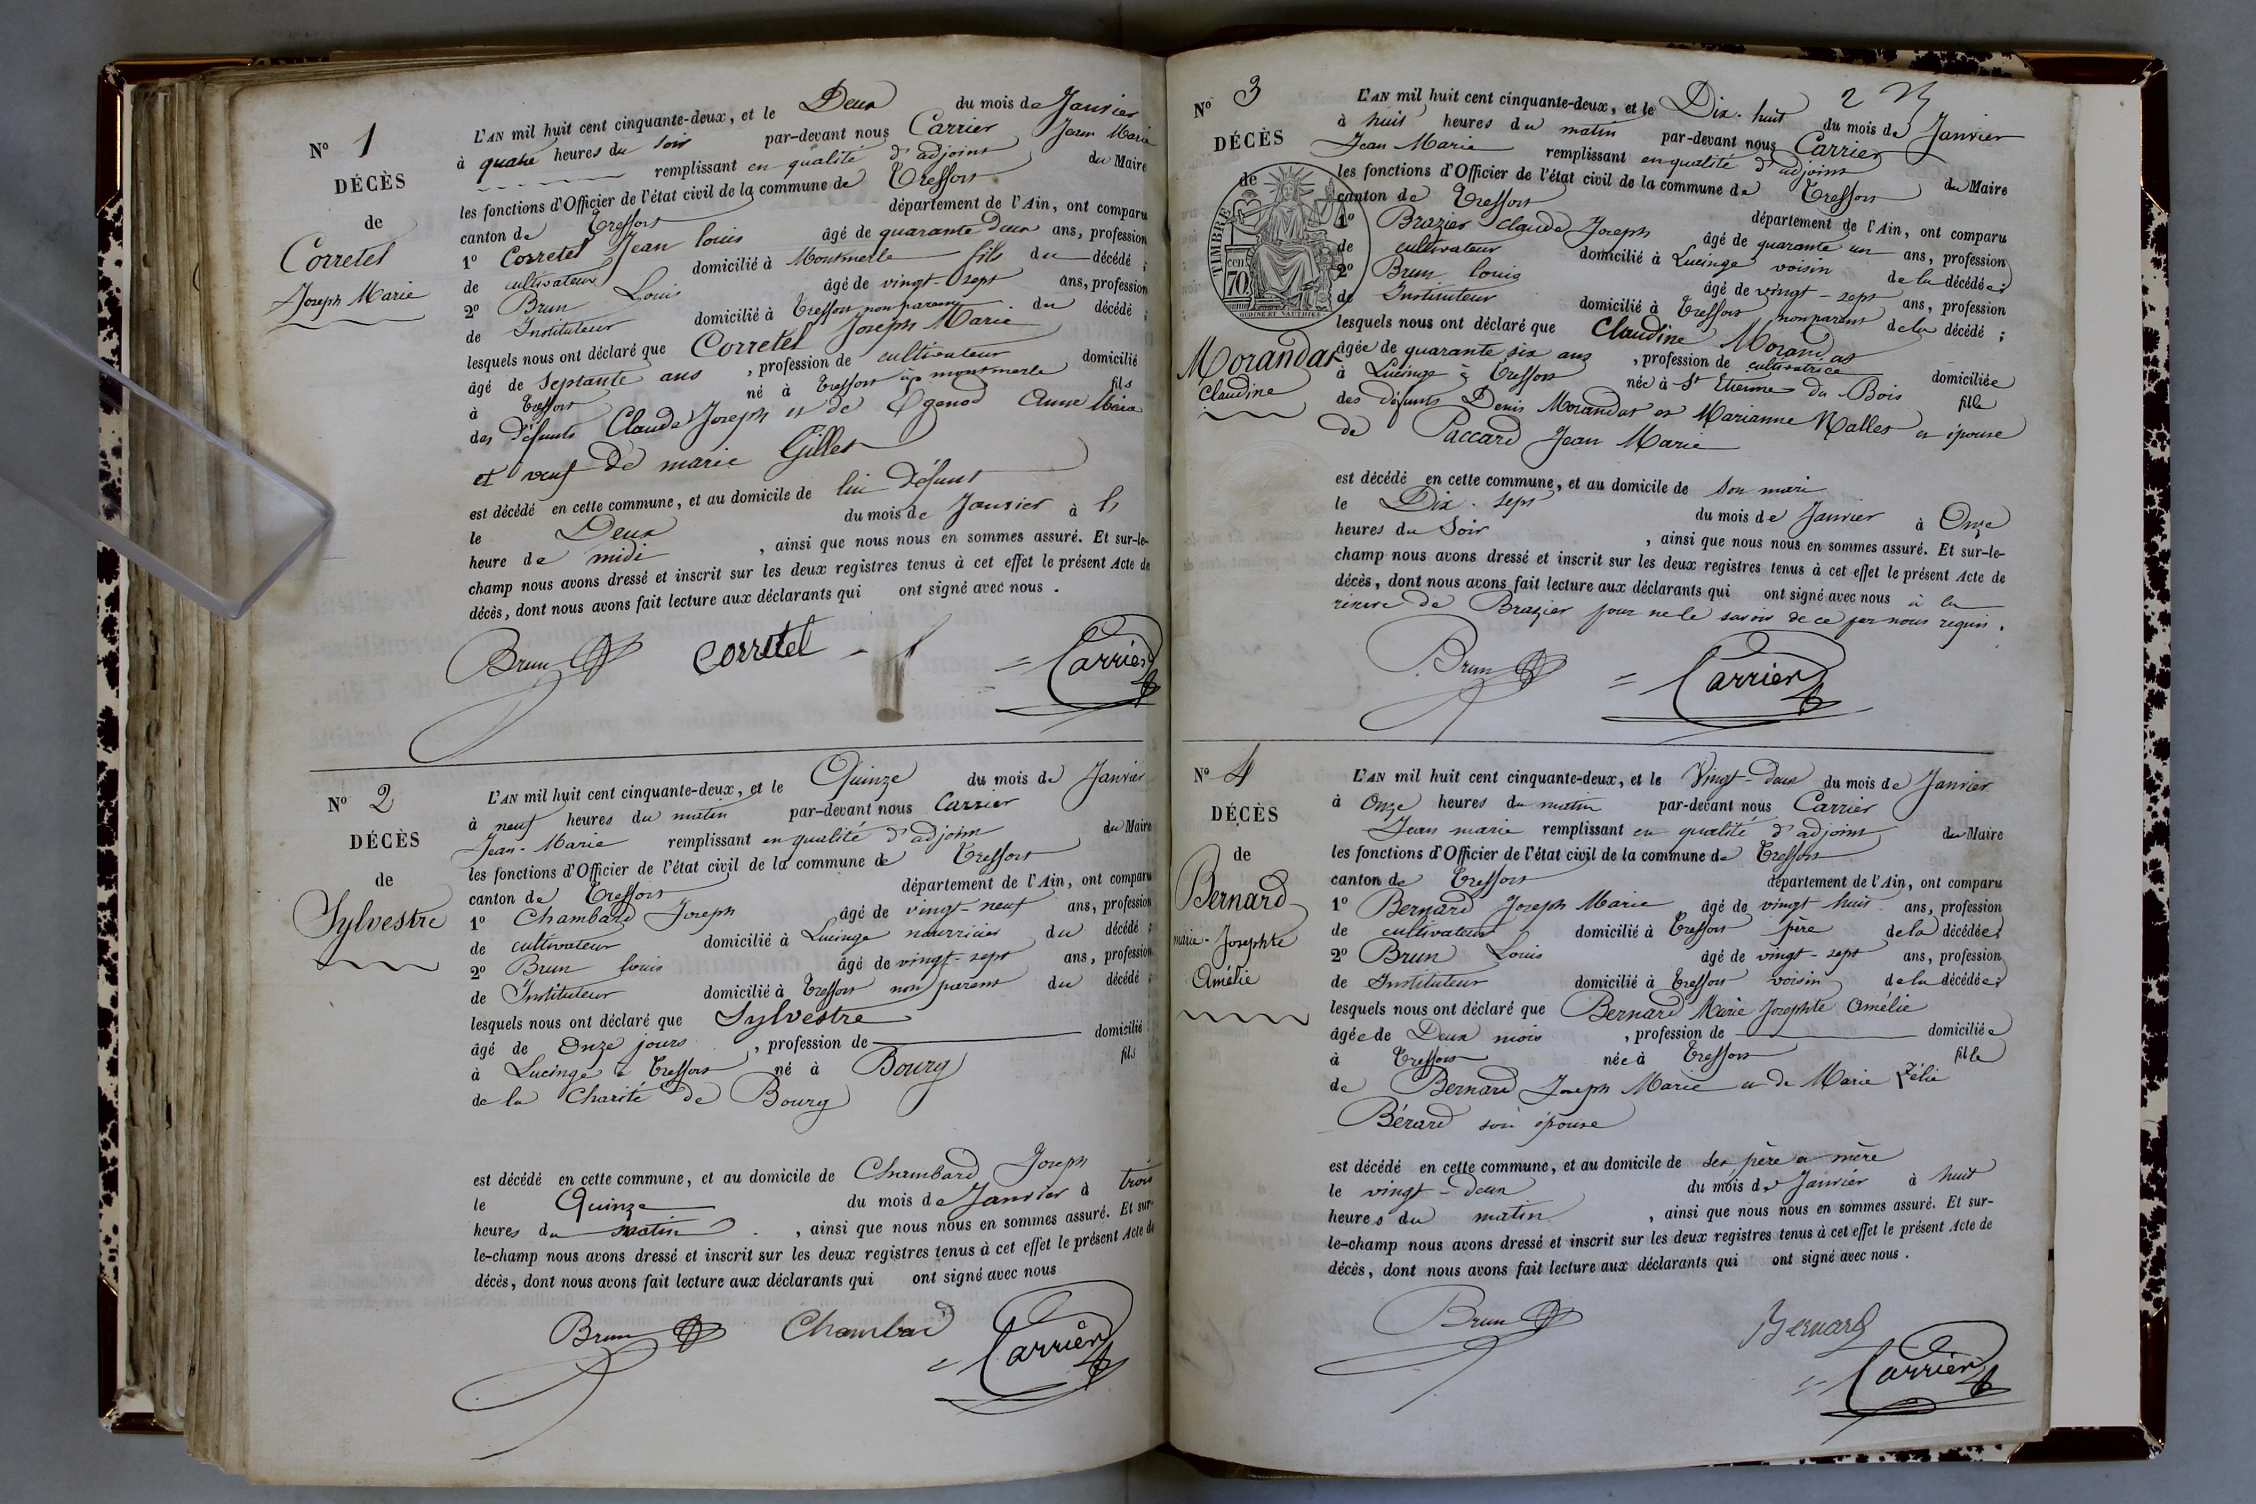 N° 1
DÉCÈS
de
Corretel
Joseph Marie
L'AN mil huit cent cinquante-deux, et le Deux du mois de Janvier
à quatre heures du soir par-devant nous Carrier Jean Marie
remplissant en qualité d'adjoint du Maire
les fonctions d'Officier de l'état civil de la commune de Treffort
canton de Treffort département de l'Ain, ont comparu
1° Corretel Jean louis âgé de quarante Deux ans, profession
de cultivateur domicilié à Montmerle fils du décédé ;
2° Brun Louis âgé de vingt-sept ans, profession
de Instituteur domicilié à Treffort non parent du décédé ;
lesquels nous ont déclaré que Corretel Joseph Marie
âgé de Septante ans , profession de cultivateur domicilié
à Treffort né à Treffort à montmerle fils
des Défunts Claude Joseph et de Egenod Anne Maria
et veuf de marie Gillet
est décédé en cette commune, et au domicile de lui Défunt
le Deux du mois de Janvier à l'
heure de midi , ainsi que nous nous en sommes assuré. Et sur-le-
champ nous avons dressé et inscrit sur les deux registres tenus à cet effet le présent Acte de
décès, dont nous avons fait lecture aux déclarants qui ont signé avec nous .
Brun corretel Carrier
N° 2
DÉCÈS
de
Sylvestre
L'AN mil huit cent cinquante-deux, et le Quinze du mois de Janvier
à neuf heures du matin par-devant nous Carrier
Jean-Marie remplissant en qualité d'adjoint du Maire
les fonctions d'Officier de l'état civil de la commune de Treffort
canton de Treffort département de l'Ain, ont comparu
1° Chambard Joseph âgé de vingt-neuf ans, profession
de cultivateur domicilié à Lucinge nourricier du décédé ;
2° Brun louis âgé de vingt-sept ans, profession
de Instituteur domicilié à Treffort non parent du décédé ;
lesquels nous ont déclaré que Sylvestre
âgé de Onze jours , profession de domicilié
à Lucinge à Treffort né à Bourg fils
de la Charité de Bourg
est décédé en cette commune, et au domicile de Chambard Joseph
le Quinze du mois de Janvier à trois
heures du matin , ainsi que nous nous en sommes assuré. Et sur-
le-champ nous avons dressé et inscrit sur les deux registres tenus à cet effet le présent Acte de
décès, dont nous avons fait lecture aux déclarants qui ont signé avec nous
Brun Chambard Carrier
2
N° 3
DÉCÈS
de
TIMBRE
70 cent
OUDINÉ ET VAUTHIER
Morandat
Claudine
L'AN mil huit cent cinquante-deux, et le Dix-huit du mois de Janvier
à huit heures du matin par-devant nous Carrier
Jean Marie remplissant en qualité d'adjoint du Maire
les fonctions d'Officier de l'état civil de la commune de Treffort
canton de Treffort département de l'Ain, ont comparu
1° Brazier Claude Joseph âgé de quarante un ans, profession
de cultivateur domicilié à Lucinge voisin de la décédée ;
2° Brun louis âgé de vingt-sept ans, profession
de Instituteur domicilié à Treffort non parent de la décédé ;
lesquels nous ont déclaré que Claudine Morandat
âgée de quarante six ans , profession de cultivatrice domiciliée
à Lucinge à Treffort née à St Etienne du Bois fille
des défunts Denis Morandat et Marianne Nallet et épouse
de Paccard Jean Marie
est décédé en cette commune, et au domicile de son mari
le Dix-sept du mois de Janvier à Onze
heures du Soir , ainsi que nous nous en sommes assuré. Et sur-le-
champ nous avons dressé et inscrit sur les deux registres tenus à cet effet le présent Acte de
décès, dont nous avons fait lecture aux déclarants qui ont signé avec nous à la
réserve de Brazier pour ne le savoir de ce par nous requis.
Brun Carrier
N° 4
DÉCÈS
de
Bernard
marie-Josephte
Amélie
L'AN mil huit cent cinquante-deux, et le Vingt-deux du mois de Janvier
à Onze heures du matin par-devant nous Carrier
Jean marie remplissant en qualité d'adjoint du Maire
les fonctions d'Officier de l'état civil de la commune de Treffort
canton de Treffort département de l'Ain, ont comparu
1° Bernard Joseph Marie âgé de vingt huit ans, profession
de cultivateur domicilié à Treffort père de la décédée ;
2° Brun Louis âgé de vingt-sept ans, profession
de Instituteur domicilié à Treffort voisin de la décédée ;
lesquels nous ont déclaré que Bernard Marie Josephte Amélie
âgée de Deux mois , profession de domiciliée
à Treffort née à Treffort fille
de Bernard Joseph Marie et de Marie Zélie
Bérard son épouse
est décédé en cette commune, et au domicile de ses père et mère
le vingt-deux du mois de Janvier à huit
heures du matin , ainsi que nous nous en sommes assuré. Et sur-
le-champ nous avons dressé et inscrit sur les deux registres tenus à cet effet le présent Acte de
décès, dont nous avons fait lecture aux déclarants qui ont signé avec nous .
Brun Bernard
Carrier